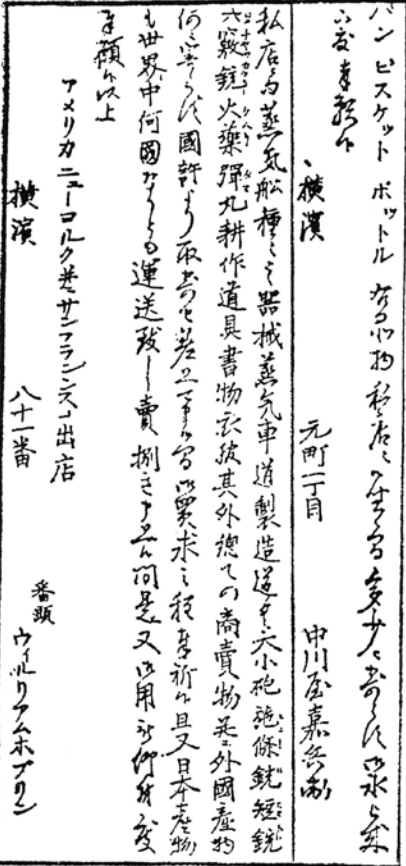 パン ビスケット ボットル 右品物私店ニ御座候間多少ニ寄らす御求被成
下度奉願候
横濱 元町一丁目 中川屋嘉兵衛
私店ニ而蒸気船種々之器械蒸気車道製造道具大小砲施條銃短銃
六竅銃火薬彈丸耕作道具書物衣服其外總ての商賣物并ニ外國産物
何ニ寄らす國許より取寄せ差上可申間御買求之程奉祈候且又日本産物
も世界中何國なりとも運送致し賣捌き可申候間是又御用被仰付度
奉願候以上
アメリカ ニューヨルク并ニサンフランシスコ出店
横濱 八十一番 番頭 ウイルリアムホブリン